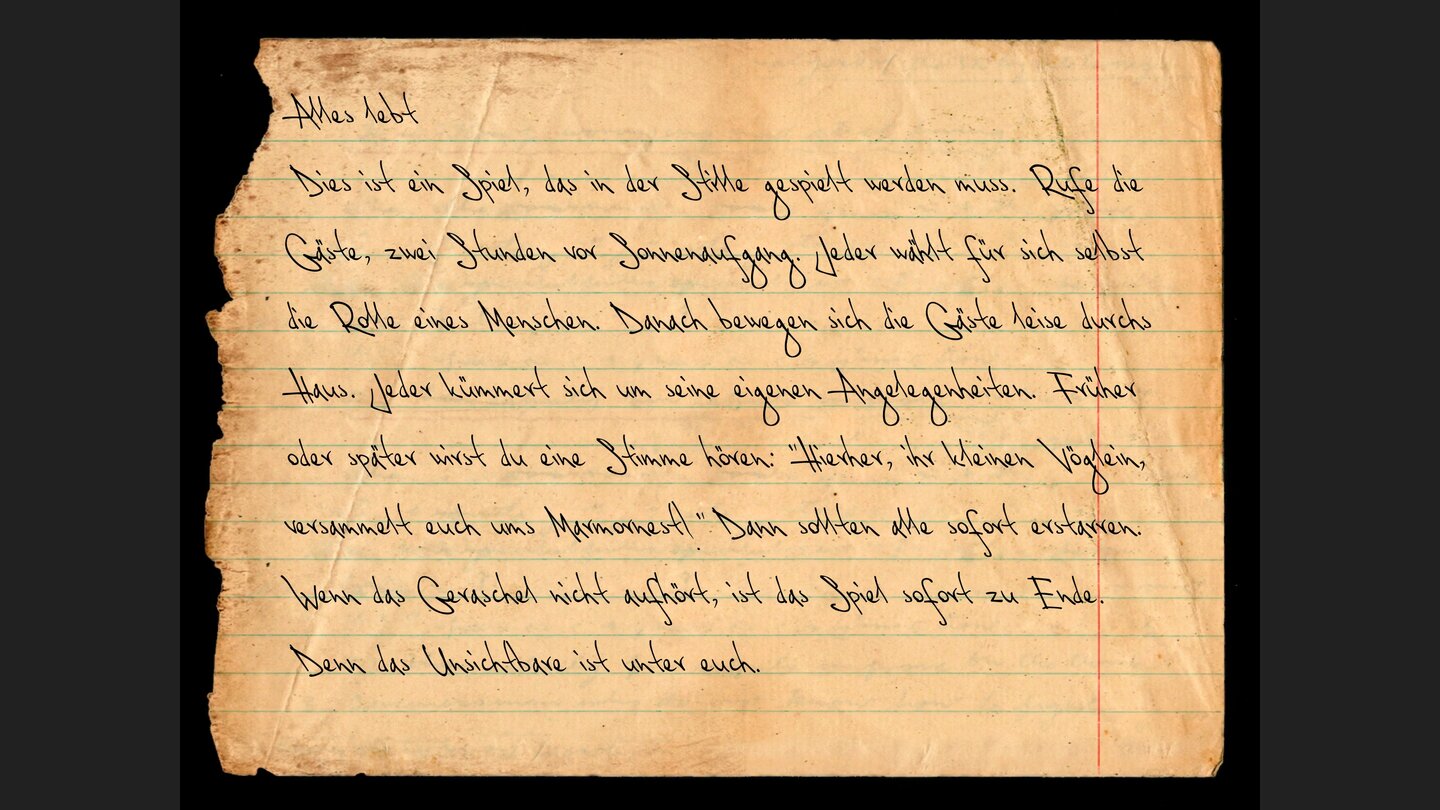 Alles lebt
Dies ist ein Spiel, das in der Stille gespielt werden muss. Rufe die
Gäste, zwei Stunden vor Sonnenaufgang. Jeder wählt für sich selbst
die Rolle eines Menschen. Danach bewegen sich die Gäste leise durchs
Haus. Jeder kümmert sich um seine eigenen Angelegenheiten. Früher
oder später wirst du eine Stimme hören: "Hierher, ihr kleinen Vöglein,
versammelt euch ums Marmornest!" Dann sollten alle sofort erstarren.
Wenn das Geraschel nicht aufhört, ist das Spiel sofort zu Ende.
Denn das Unsichtbare ist unter euch.